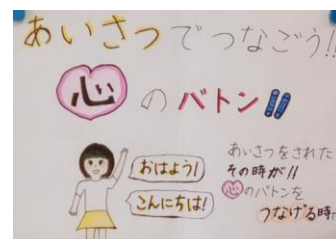 あいさつでつなごう!!
心のバトン!!
おはよう!
こんにちは!
あいさつをされた
その時が!!
心のバトンを
つなげる時!